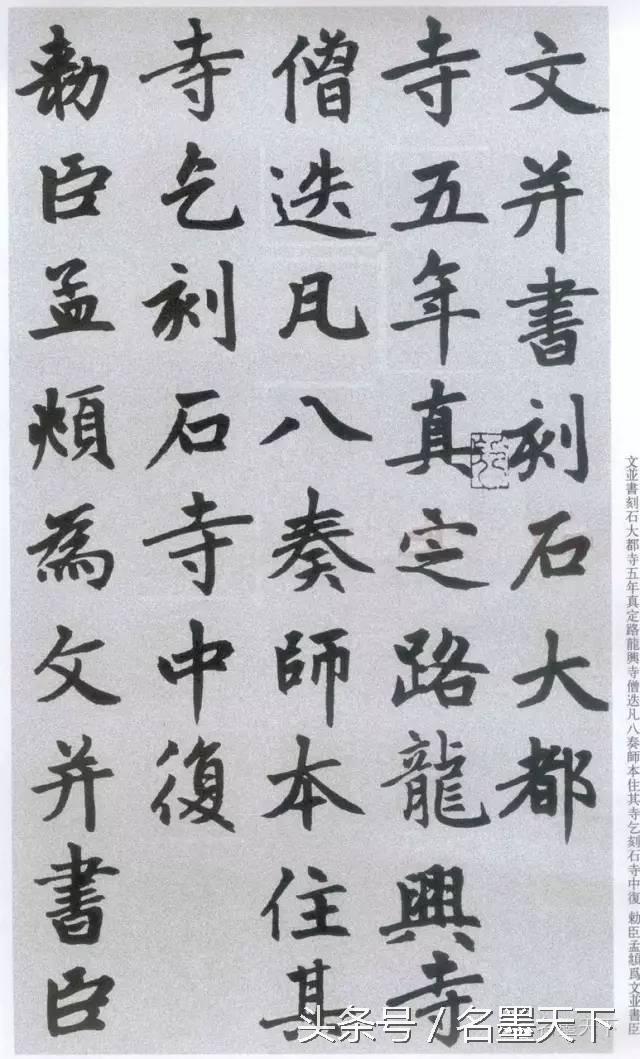 文并書刻石大都
寺五年真定路龍興寺
僧迭凡八奏師本住其
寺乞刻石寺中復
勅臣孟頫為文并書臣
文並書刻石大都寺五年真定路龍興寺僧迭凡八奏師本住其寺乞刻石寺中復 勅臣孟頫爲文並書臣
头条号／名墨天下